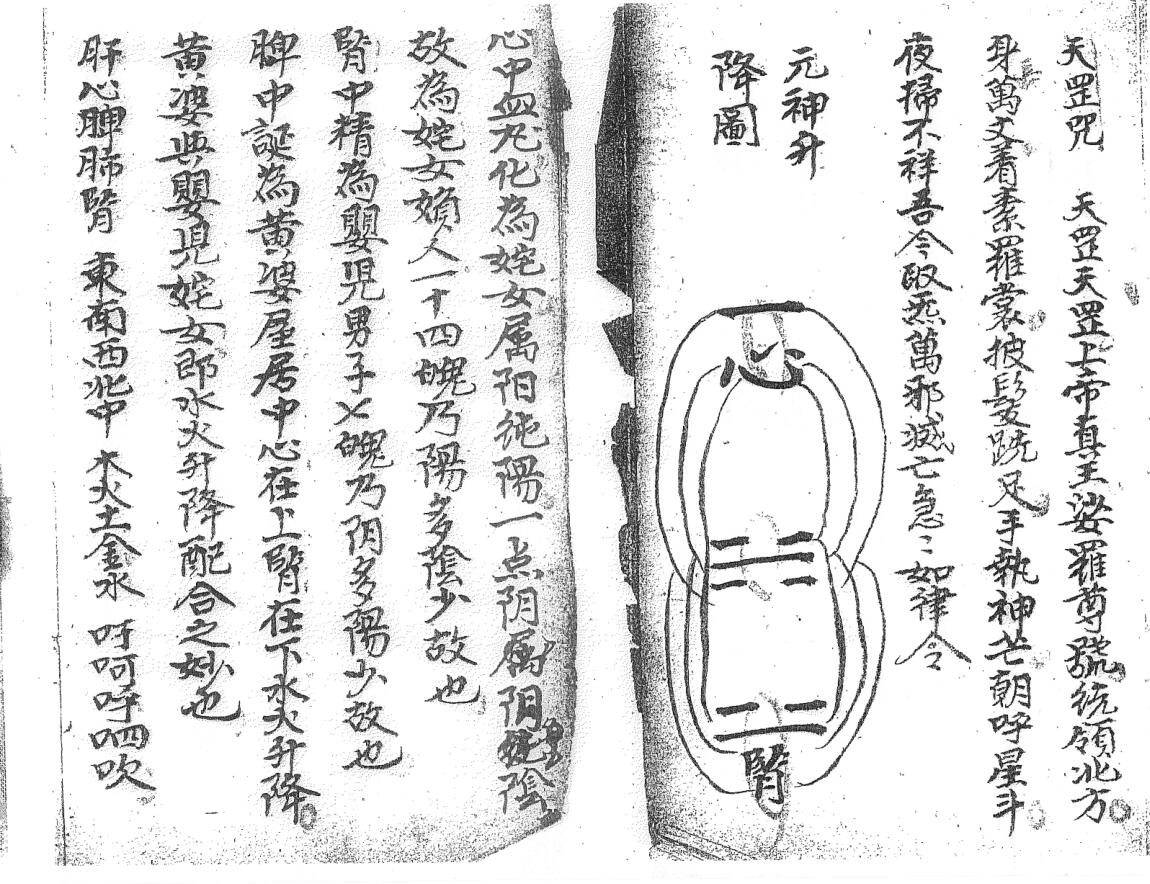 天罡咒　天罡天罡上帝真王娑羅尊號統領北方
身萬丈着素羅裳披髮跣足手執神芒朝呼星斗
夜掃不祥吾今取炁萬邪滅亡急〻如律令
元神升
降圖
心
腎
心中血 化為姹女属阳純陽一点阴属阴 陰
故為姹女 人一十四魄乃陽多陰少故也
腎中精為嬰児男子七魄乃阴多陽少故也
脾中誕為黄婆屋居中心在上腎在下水火升降
黄婆與嬰児姹女即水火升降配合之妙也
肝心脾肺腎　東南西北中　木火土金水　呼呵呼呬吹